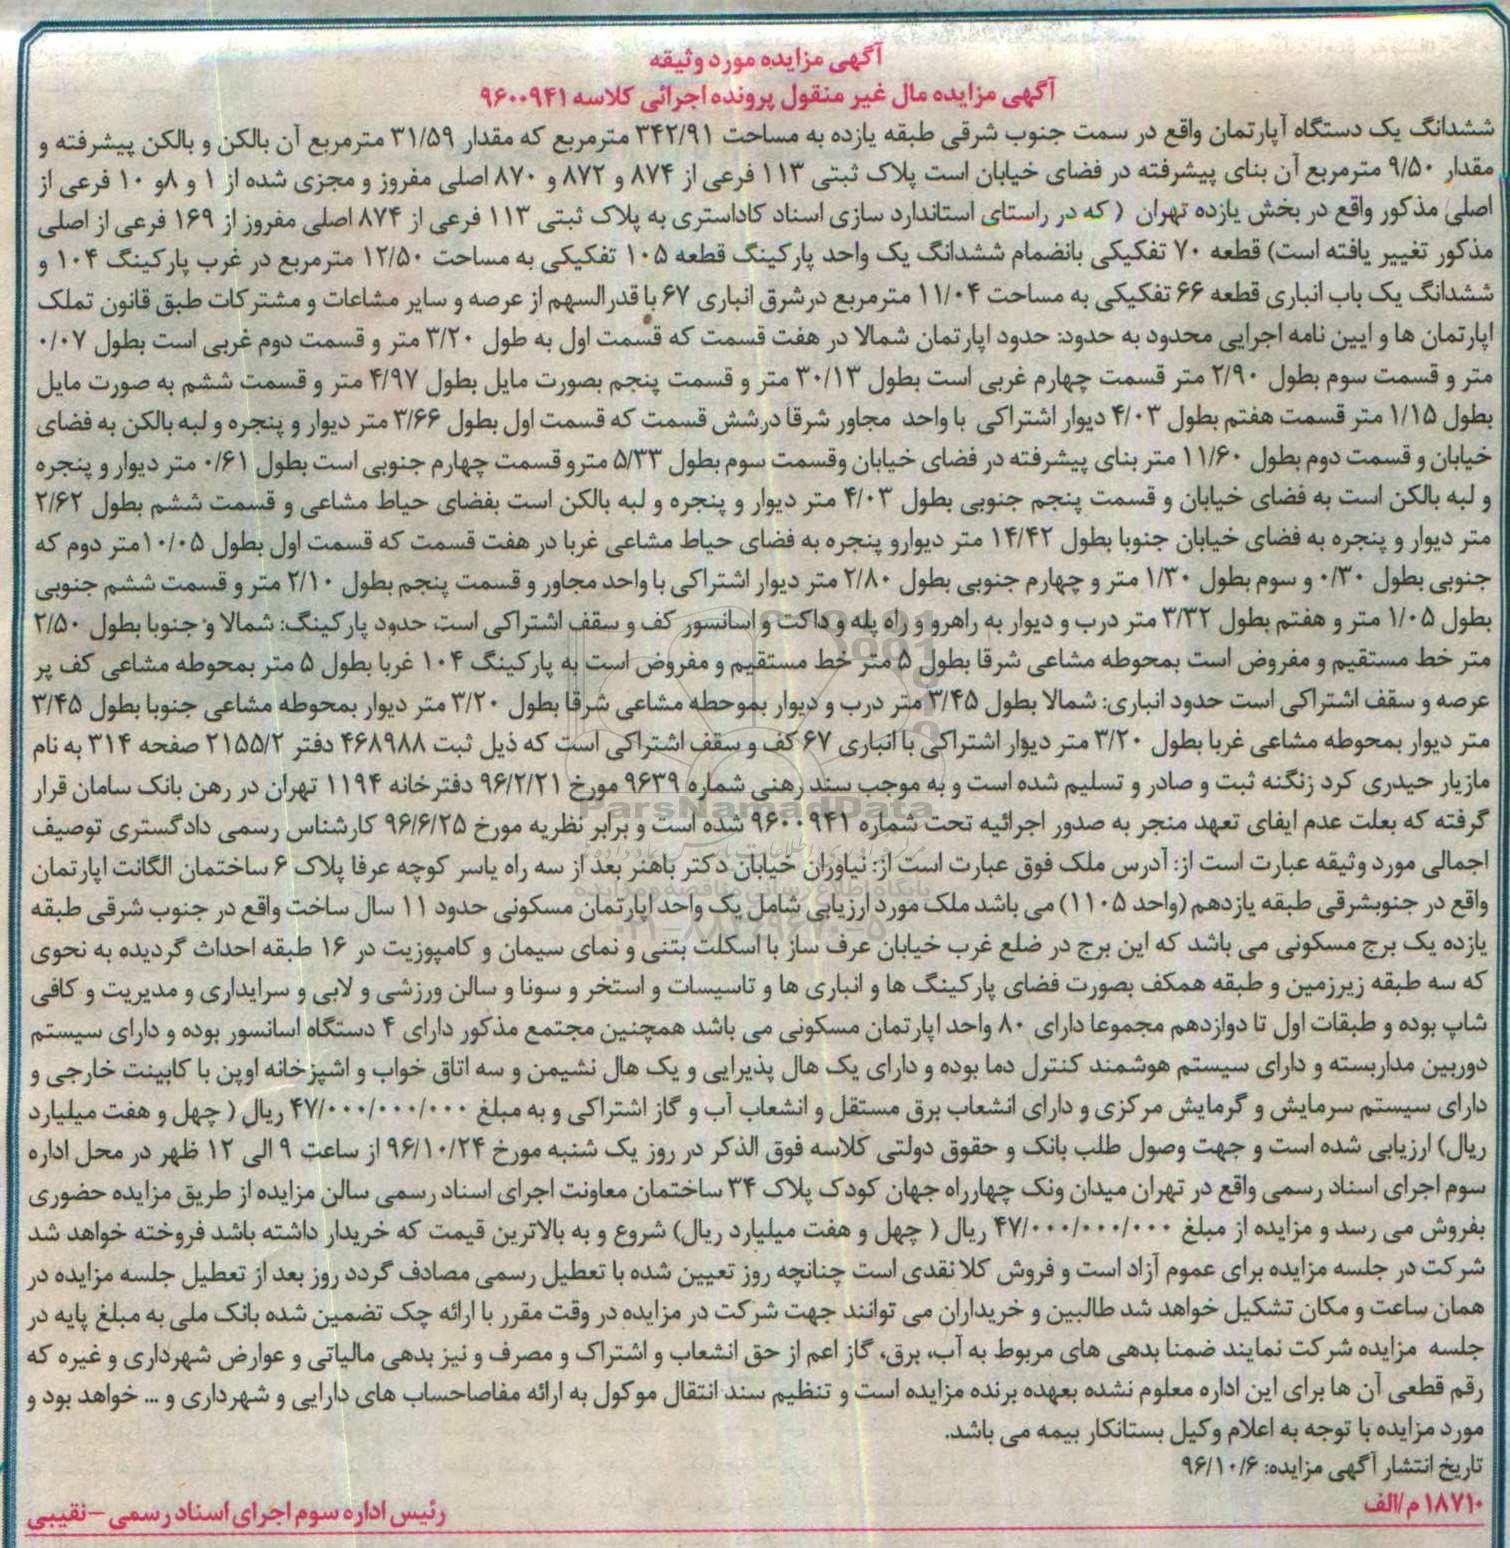 آگهی مزایده مورد وثیقه
آگهی مزایده مال غیر منقول پرونده اجرائی کلاسه ۹۶۰۰۹۴۱
ششدانگ یک دستگاه آپارتمان واقع در سمت جنوب شرقی طبقه یازده به مساحت ۳۴۲/۹۱ مترمربع که مقدار ۳۱/۵۹ مترمربع آن بالکن و بالکن پیشرفته و
مقدار ۹/۵۰ مترمربع آن بنای پیشرفته در فضای خیابان است پلاک ثبتی ۱۱۳ فرعی از ۸۷۴ و ۸۷۲ و ۸۷۰ اصلی مفروز و مجزی شده از ۱ و ۸و ۱۰ فرعی از
اصلی مذکور واقع در بخش یازده تهران ( که در راستای استاندارد سازی اسناد کاداستری به پلاک ثبتی ۱۱۳ فرعی از ۸۷۴ اصلی مفروز از ۱۶۹ فرعی از اصلی
مذکور تغییر یافته است) قطعه ۷۰ تفکیکی بانضمام ششدانگ یک واحد پارکینگ قطعه ۱۰۵ تفکیکی به مساحت ۱۲/۵۰ مترمربع در غرب پارکینگ ۱۰۴ و
ششدانگ یک باب انباری قطعه ۶۶ تفکیکی به مساحت ۱۱/۰۴ مترمربع درشرق انباری ۶۷ با قدرالسهم از عرصه و سایر مشاعات و مشترکات طبق قانون تملک
اپارتمان ها و ایین نامه اجرایی محدود به حدود: حدود اپارتمان شمالا در هفت قسمت که قسمت اول به طول ۳/۲۰ متر و قسمت دوم غربی است بطول ۰/۰۷
متر و قسمت سوم بطول ۲/۹۰ متر قسمت چهارم غربی است بطول ۳۰/۱۳ متر و قسمت پنجم بصورت مایل بطول ۴/۹۷ متر و قسمت ششم به صورت مایل
بطول ۱/۱۵ متر قسمت هفتم بطول ۴/۰۳ دیوار اشتراکی با واحد مجاور شرقا درشش قسمت که قسمت اول بطول ۳/۶۶ متر دیوار و پنجره و لبه بالکن به فضای
خیابان و قسمت دوم بطول ۱۱/۶۰ متر بنای پیشرفته در فضای خیابان وقسمت سوم بطول ۵/۳۳ مترو قسمت چهارم جنوبی است بطول ۰/۶۱ متر دیوار و پنجره
و لبه بالکن است به فضای خیابان و قسمت پنجم جنوبی بطول ۴/۰۳ متر دیوار و پنجره و لبه بالکن است بفضای حیاط مشاعی و قسمت ششم بطول ۲/۶۲
متر دیوار و پنجره به فضای خیابان جنوبا بطول ۱۴/۴۲ متر دیوارو پنجره به فضای حیاط مشاعی غربا در هفت قسمت که قسمت اول بطول ۱۰/۰۵متر دوم که
جنوبی بطول ۰/۳۰ و سوم بطول ۱/۳۰ متر و چهارم جنوبی بطول ۲/۸۰ متر دیوار اشتراکی با واحد مجاور و قسمت پنجم بطول ۲/۱۰ متر و قسمت ششم جنوبی
بطول ۱/۰۵ متر و هفتم بطول ۳/۳۲ متر درب و دیوار به راهرو و راه پله و داکت و اسانسور کف و سقف اشتراکی است. حدود پارکینگ: شمالا و جنوبا بطول ۲/۵۰
متر خط مستقیم و مفروض است بمحوطه مشاعی شرقا بطول ۵ متر خط مستقیم و مفروض است به پارکینگ ۱۰۴ غربا بطول ۵ متر بمحوطه مشاعی کف پر
عرصه و سقف اشتراکی است حدود انباری: شمالا بطول ۳/۴۵ متر درب و دیوار بموحطه مشاعی شرقا بطول ۳/۲۰ متر دیوار بمحوطه مشاعی جنوبا بطول ۳/۴۵
متر دیوار بمحوطه مشاعی غربا بطول ۳/۲۰ متر دیوار اشتراکی با انباری ۶۷ کف و سقف اشتراکی است که ذیل ثبت ۴۶۸۹۸۸ دفتر ۲۱۵۵/۲ صفحه ۳۱۴ به نام
مازیار حیدری کرد زنگنه ثبت و صادر و تسلیم شده است و به موجب سند رهنی شماره ۹۶۳۹ مورخ ۹۶/۲/۲۱ دفترخانه ۱۱۹۴ تهران در رهن بانک سامان قرار
گرفته که بعلت عدم ایفای تعهد منجر به صدور اجرائیه تحت شماره ۹۶۰۰۹۴۱ شده است و برابر نظریه مورخ ۹۶/۶/۲۵ کارشناس رسمی دادگستری توصیف
اجمالی مورد وثیقه عبارت است از: آدرس ملک فوق عبارت است از: نیاوران خیابان دکتر باهنر بعد از سه راه یاسر کوچه عرفا پلاک ۶ ساختمان الگانت اپارتمان
واقع در جنوبشرقی طبقه یازدهم (واحد ۱۱۰۵) می باشد ملک مورد ارزیابی شامل یک واحد اپارتمان مسکونی حدود ۱۱ سال ساخت واقع در جنوب شرقی طبقه
یازده یک برج مسکونی می باشد که این برج در ضلع غرب خیابان عرف ساز با اسکلت بتنی و نمای سیمان و کامپوزیت در ۱۶ طبقه احداث گردیده به نحوی
که سه طبقه زیرزمین و طبقه همکف بصورت فضای پارکینگ ها و انباری ها و تاسیسات و استخر و سونا و سالن ورزشی و لابی و سرایداری و مدیریت و کافی
شاپ بوده و طبقات اول تا دوازدهم مجموعا دارای ۸۰ واحد اپارتمان مسکونی می باشد همچنین مجتمع مذکور دارای ۴ دستگاه اسانسور بوده و دارای سیستم
دوربین مداربسته و دارای سیستم هوشمند کنترل دما بوده و دارای یک هال پذیرایی و یک هال نشیمن و سه اتاق خواب و اشپزخانه اوپن با کابینت خارجی و
دارای سیستم سرمایش و گرمایش مرکزی و دارای انشعاب برق مستقل و انشعاب آب و گاز اشتراکی و به مبلغ ۴۷/۰۰۰/۰۰۰/۰۰۰ ریال ( چهل و هفت میلیارد
ریال) ارزیابی شده است و جهت وصول طلب بانک و حقوق دولتی کلاسه فوق الذکر در روز یک شنبه مورخ ۹۶/۱۰/۲۴ از ساعت ۹ الی ۱۲ ظهر در محل اداره
سوم اجرای اسناد رسمی واقع در تهران میدان ونک چهارراه جهان کودک پلاک ۳۴ ساختمان معاونت اجرای اسناد رسمی سالن مزایده از طریق مزایده حضوری
بفروش می رسد و مزایده از مبلغ ۴۷/۰۰۰/۰۰۰/۰۰۰ ریال ( چهل و هفت میلیارد ریال) شروع و به بالاترین قیمت که خریدار داشته باشد فروخته خواهد شد
شرکت در جلسه مزایده برای عموم آزاد است و فروش کلا نقدی است چنانچه روز تعیین شده با تعطیل رسمی مصادف گردد روز بعد از تعطیل جلسه مزایده در
همان ساعت و مکان تشکیل خواهد شد طالبین و خریداران می توانند جهت شرکت در مزایده در وقت مقرر با ارائه چک تضمین شده بانک ملی به مبلغ پایه در
جلسه مزایده شرکت نمایند ضمنا بدهی های مربوط به آب، برق، گاز اعم از حق انشعاب و اشتراک و مصرف و نیز بدهی مالیاتی و عوارض شهرداری و غیره که
رقم قطعی آن ها برای این اداره معلوم نشده بعهده برنده مزایده است و تنظیم سند انتقال موکول به ارائه مفاصاحساب های دارایی و شهرداری و ... خواهد بود و
مورد مزایده با توجه به اعلام وکیل بستانکار بیمه می باشد.
تاریخ انتشار آگهی مزایده: ۹۶/۱۰/۶
۱۸۷۱۰ م/الف
رئیس اداره سوم اجرای اسناد رسمی – نقیبی
ParsNamadData
پایگاه اطلاع رسانی مناقصه و مزایده